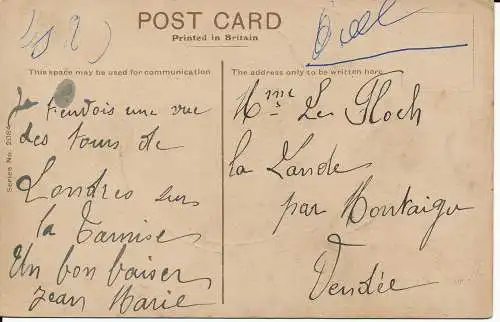 POST CARD
Printed in Britain
This space may be used for communication
The address only to be written here
Series No. 2084
Je t'envois une vue
des tours de
Londres sur
la Tamise
Un bon baiser
Jean Marie
Mme Le Floch
la Lande
par Montaigu
Vendée